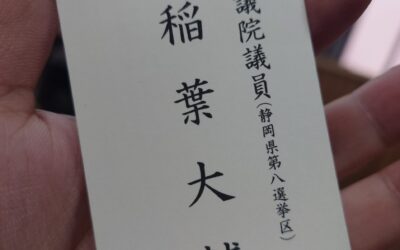 議院議員(静岡県第八選挙区)
稲葉大